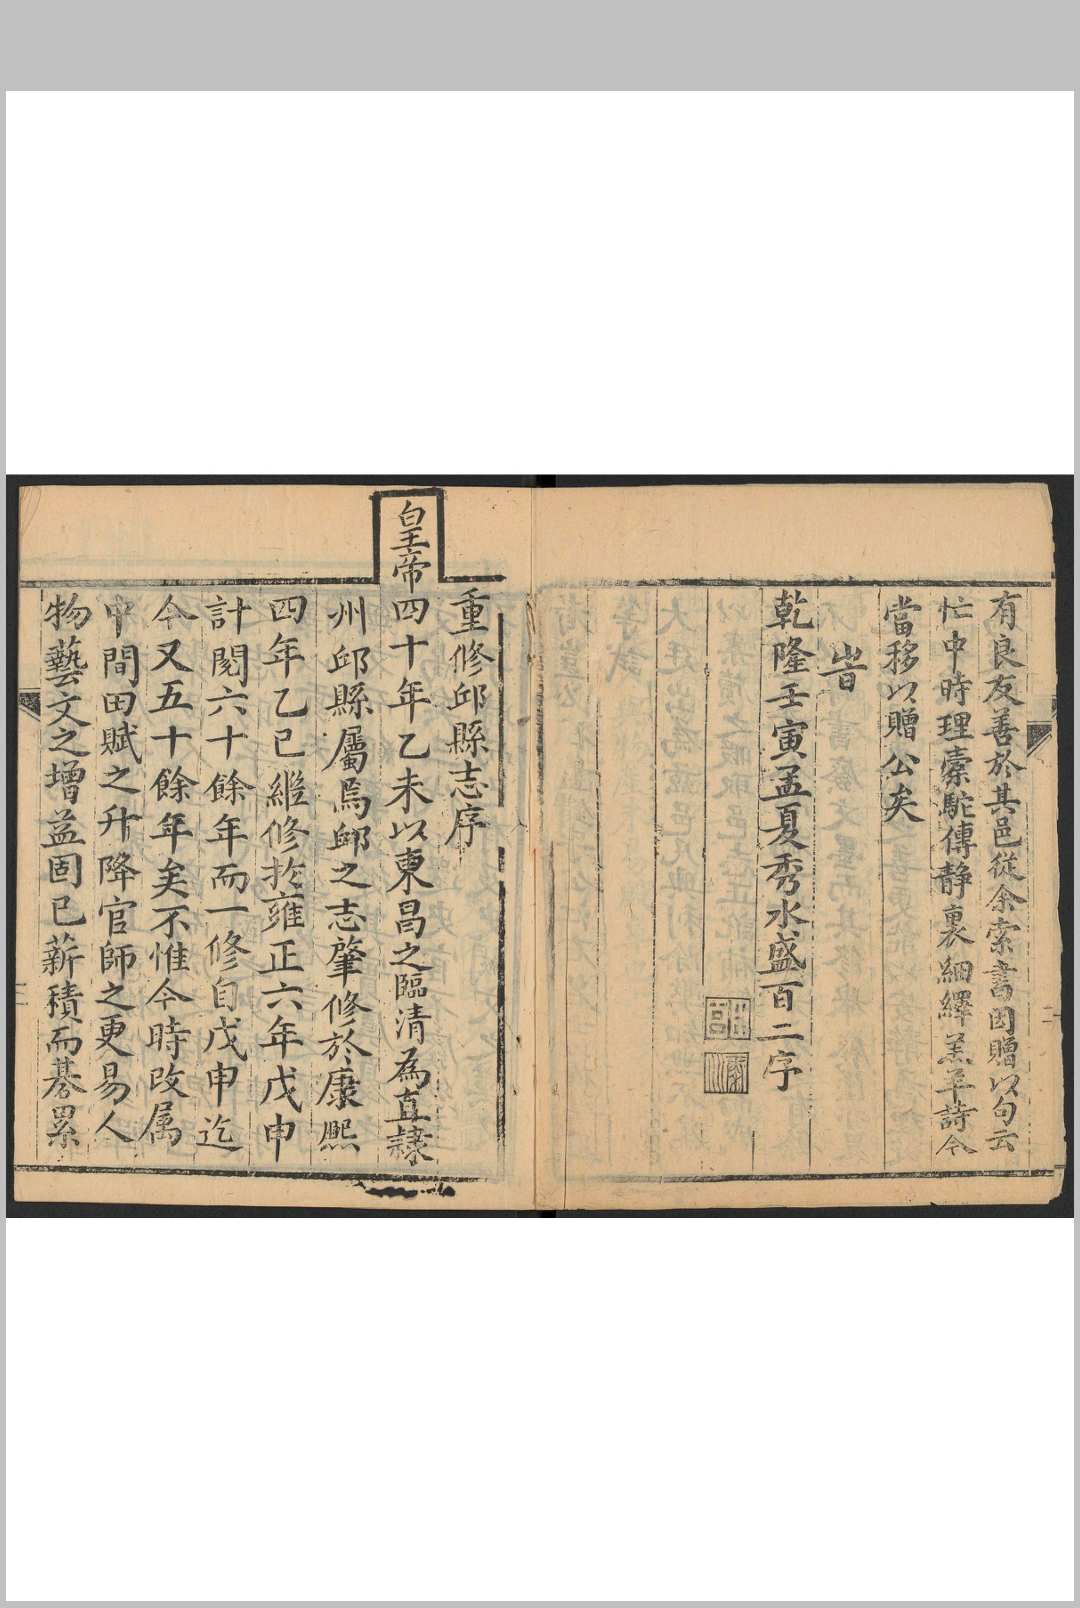 有良友善於其邑從余索書因贈以句云
忙中時理橐駝傳靜裏細繹羔羊詩今
當移以贈公矣
旹
乾隆壬寅孟夏秀水盛百二序
重修邱縣志序
皇帝四十年乙未以東昌之臨清為直隸
州邱縣屬焉邱之志肇修於康熙
四年乙巳繼修於雍正六年戊申
計閱六十餘年而一修自戊申迄
今又五十餘年矣不惟今時改属
中間田賦之升降官師之更易人
物藝文之增益固已薪積而綦累